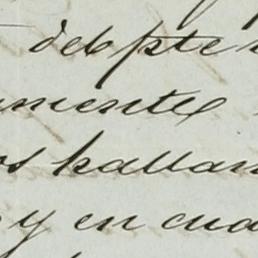 debpte
mente
os hallan
y en cua